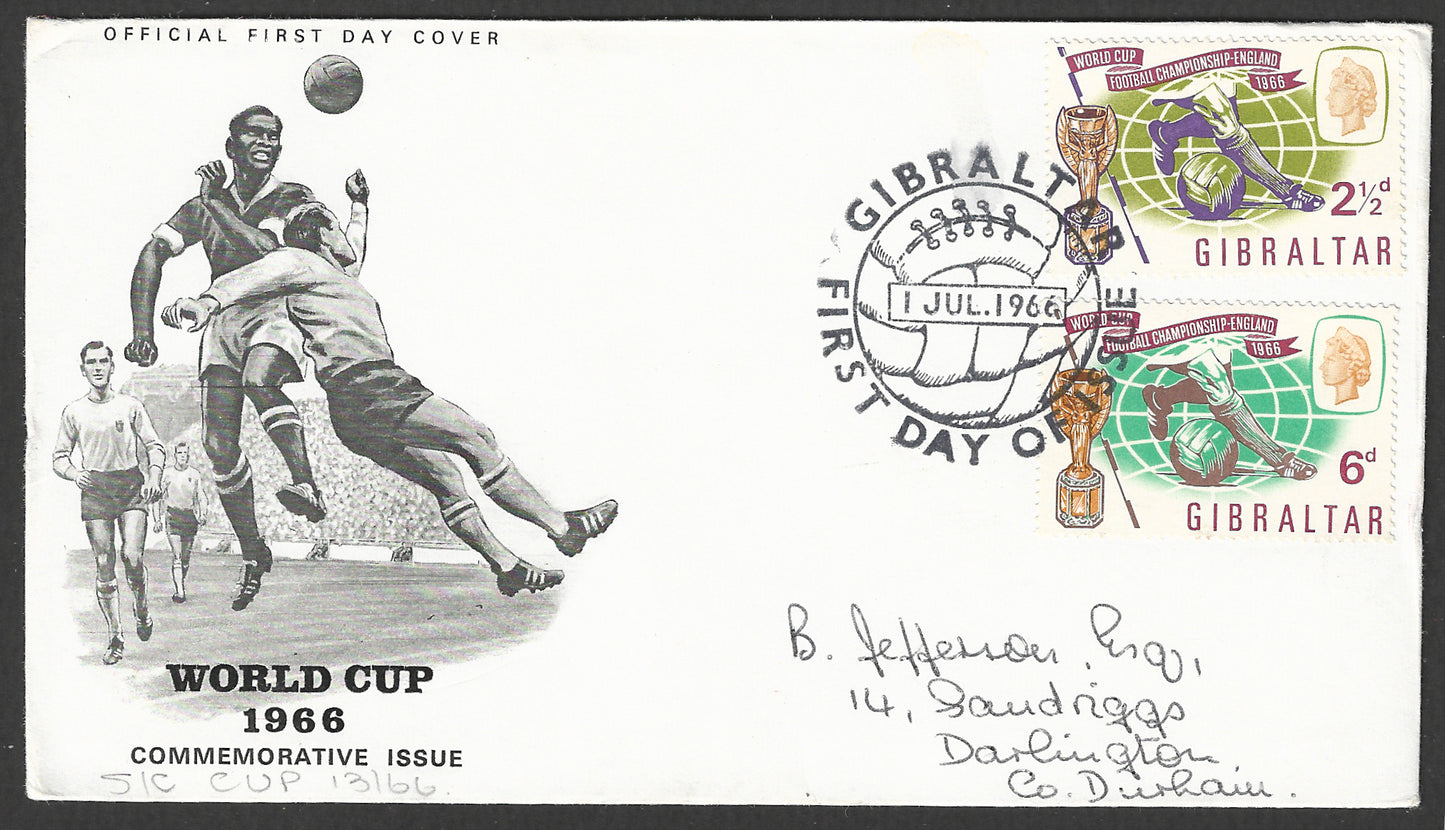 OFFICIAL FIRST DAY COVER
WORLD CUP
FOOTBALL CHAMPIONSHIP-ENGLAND
1966
2½d
GIBRALTAR
GIBRALTAR
1 JUL.1966
FIRST DAY OF ISSUE
WORLD CUP
FOOTBALL CHAMPIONSHIP-ENGLAND
1966
6d
GIBRALTAR
B. Jefferson, Esq,
14, Sandriggs
Darlington
Co. Durham.
WORLD CUP
1966
COMMEMORATIVE ISSUE
S/C CUP 13/66.